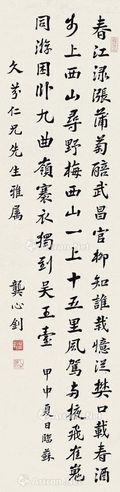 春江渌漲蒲萄醅武昌官柳知誰栽憶從樊口載春酒
步上西山尋野梅西山一上十五里風駕兩掖飛崔嵬
同游困卧九曲嶺褰衣獨到吳王臺 甲申夏日臨蘇
久芬仁兄先生雅屬 龔心釗